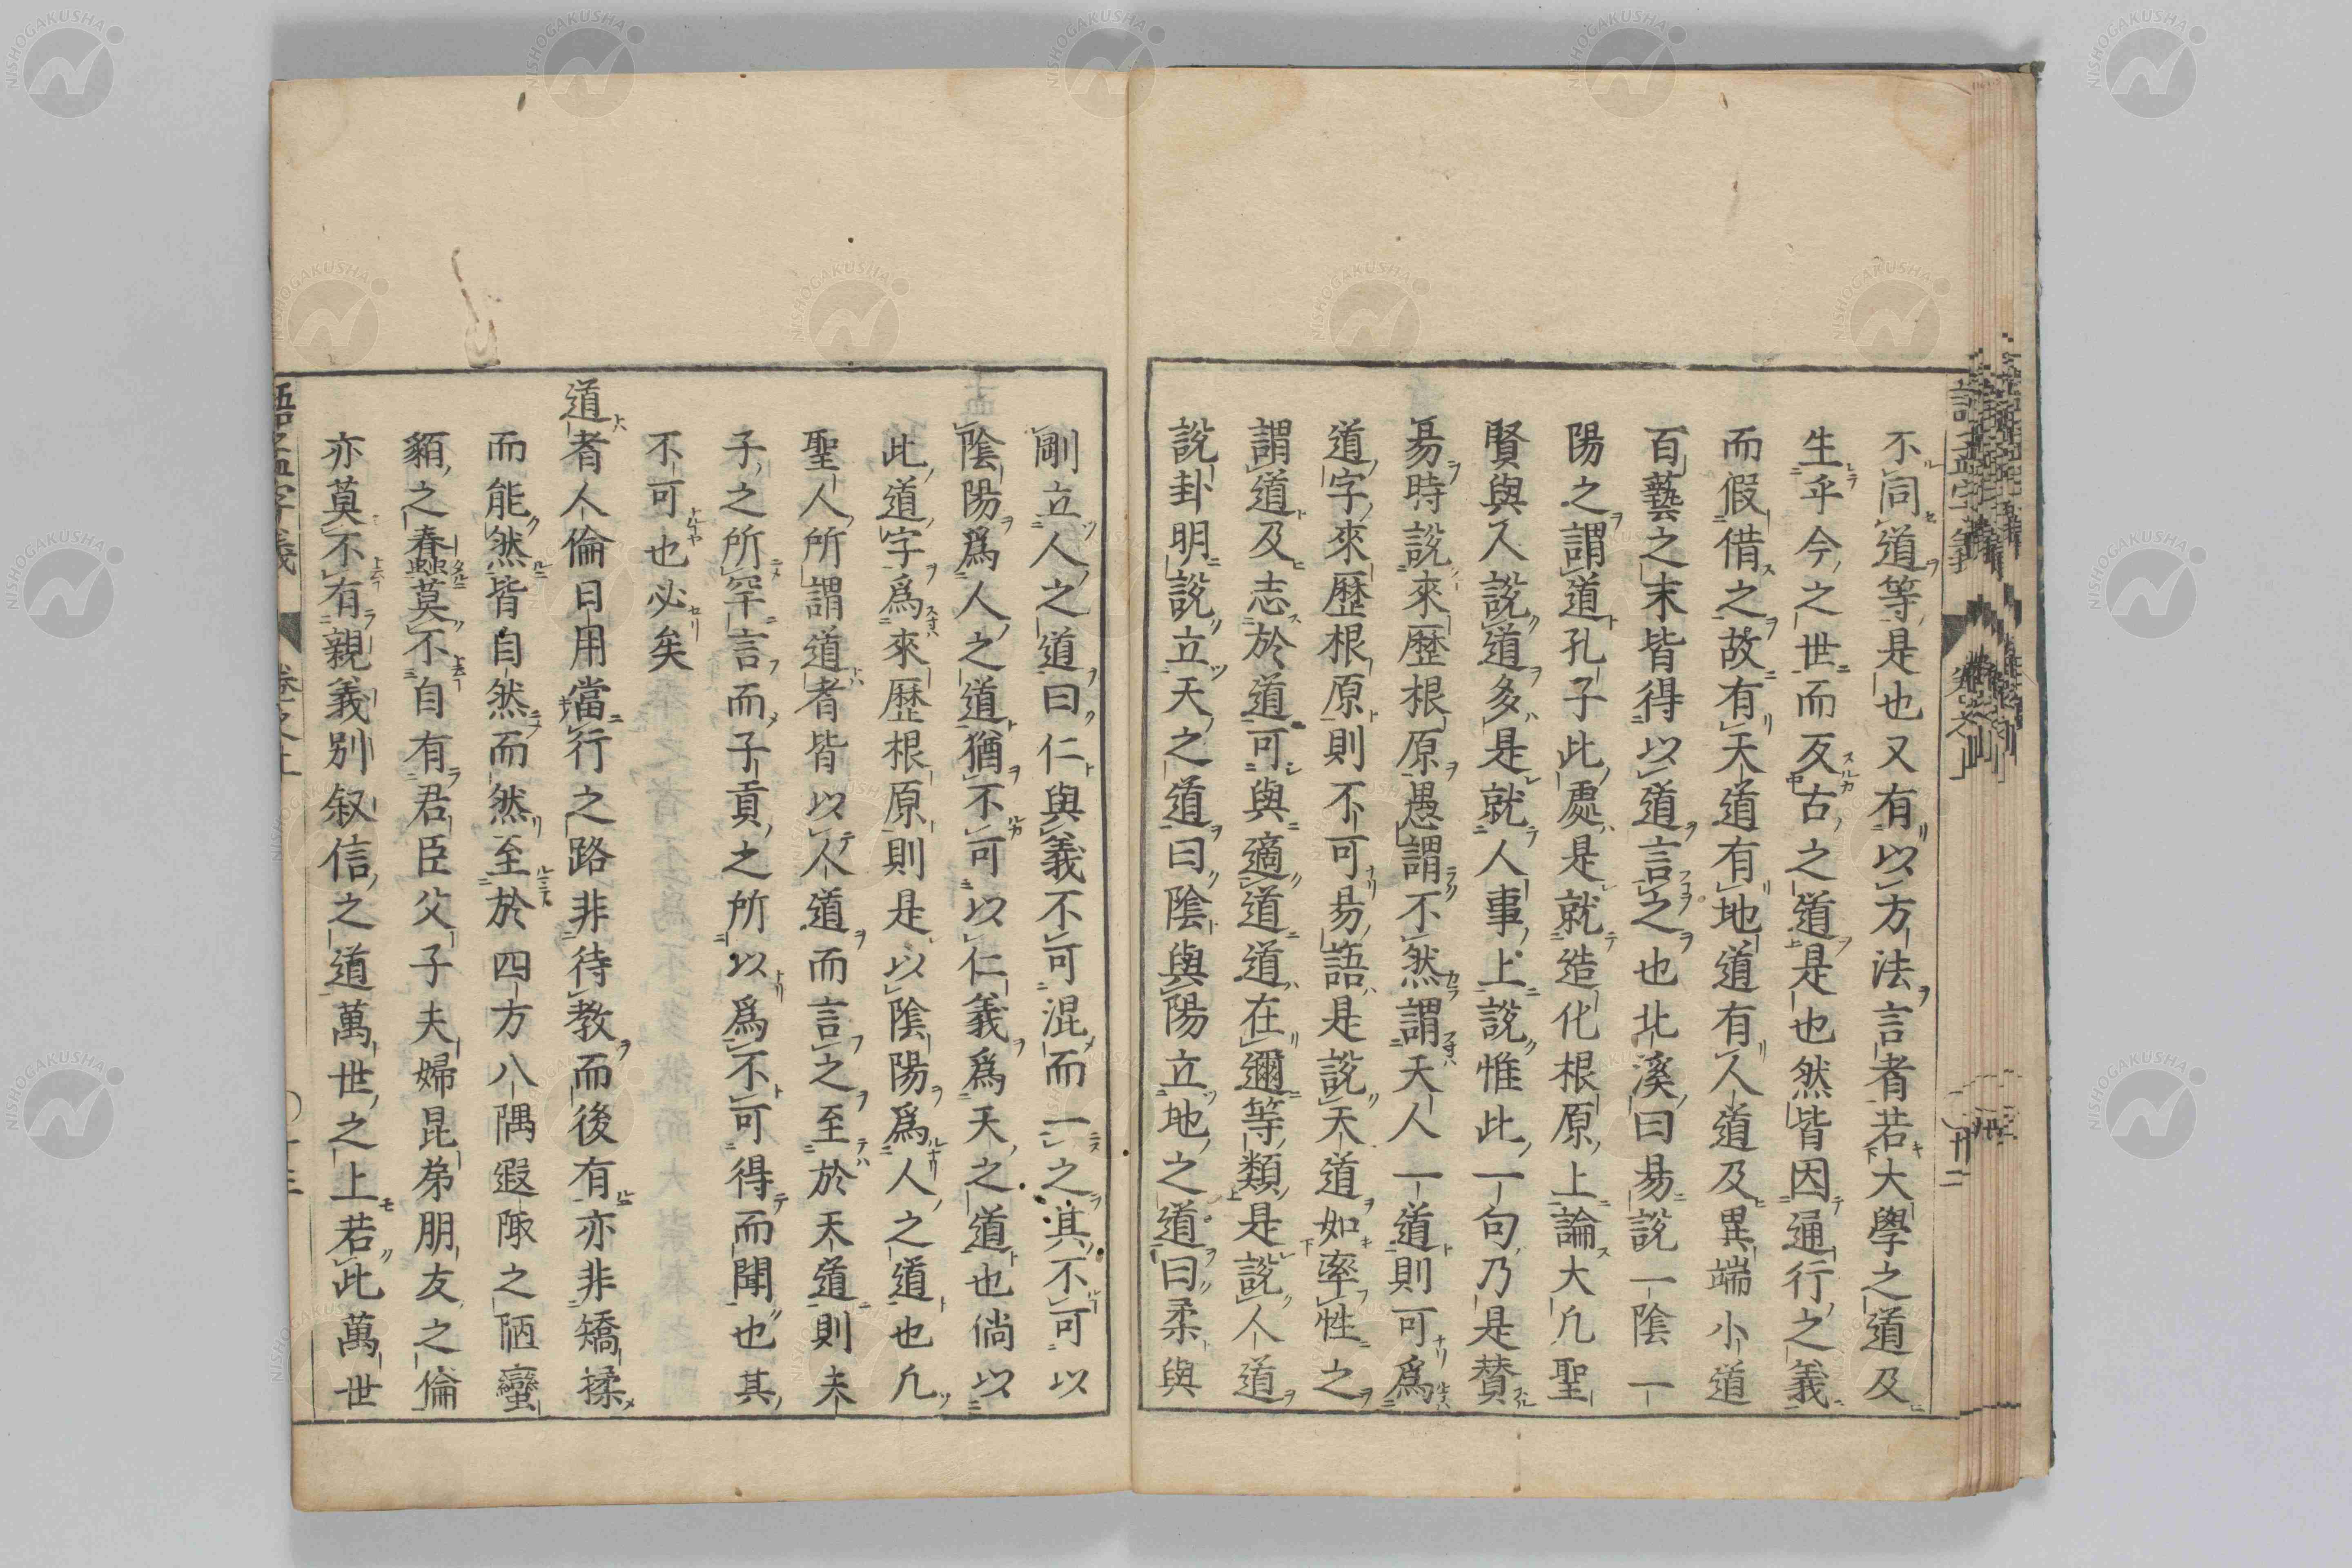 不同道等是也又有以方法言者若大學之道及
生乎今之世而反古之道是也然皆因通行之義
而假借之故有天道有地道有人道及異端小道
百藝之末皆得以道言之也北溪曰易說一陰一
陽之謂道孔子此處是就造化根原上論大凡聖
賢與人說道多是就人事上說惟此一句乃是贊
易時說來歷根原愚謂不然謂天人一道則可爲
道字來歷根原則不可易語是說天道如率性之
謂道及志於道可與適道道在邇等類是說人道
說卦明說立天之道曰陰與陽立地之道曰柔與
剛立人之道曰仁與義不可混而一之其不可以
陰陽爲人之道猶不可以仁義爲天之道也倘以
此道字爲來歷根原則是以陰陽爲人之道也凡
聖人所謂道者皆以人道而言之至於天道則夫
子之所罕言而子貢之所以爲不可得而聞也其
不可也必矣
道者人倫日用當行之路非待教而後有亦非矯揉
而能然皆自然而然至於四方八隅遐陬之陋蠻
貊之蠢莫不自有君臣父子夫婦昆弟朋友之倫
亦莫不有親義別叙信之道萬世之上若此萬世
語孟字義 卷之上
NISHOGAKUSHA